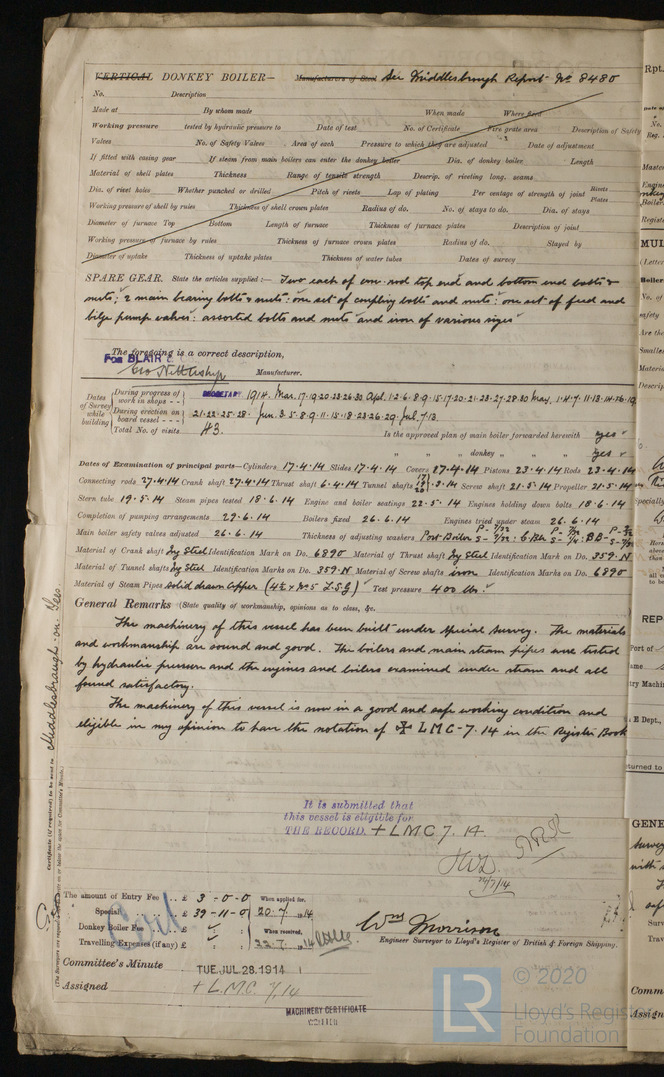 VERTICAL DONKEY BOILER— Manufacturers of Steel See Middlesbrough Report No 8480
No. Description
Made at By whom made When made Where fixed
Working pressure tested by hydraulic pressure to Date of test No. of Certificate Fire grate area Description of Safety
Valves No. of Safety Valves Area of each Pressure to which they are adjusted Date of adjustment
If fitted with casing gear If steam from main boilers can enter the donkey boiler Dia. of donkey boiler Length
Material of shell plates Thickness Range of tensile strength Descrip. of riveting long. seams
Dia. of rivet holes Whether punched or drilled Pitch of rivets Lap of plating Per centage of strength of joint Rivets Plates
Working pressure of shell by rules Thickness of shell crown plates Radius of do. No. of stays to do. Dia. of stays
Diameter of furnace Top Bottom Length of furnace Thickness of furnace plates Description of joint
Working pressure of furnace by rules Thickness of furnace crown plates Radius of do. Stayed by
Diameter of uptake Thickness of uptake plates Thickness of water tubes Dates of survey
SPARE GEAR. State the articles supplied:— Two each of con-rod top end and bottom end bolts &
nuts; 2 main bearing bolts & nuts: one set of coupling bolts and nuts: one set of feed and
bilge pump valves: assorted bolts and nuts and iron of various sizes
The foregoing is a correct description,
FOR BLAIR &
Geo Nettleship Manufacturer.
SECRETARY
Dates of Survey while building
During progress of work in shops - - 1914. Mar. 17.19.20.23.26.30 Apl. 1.2.6.8.9.15.17.20.21.23.27.28.30 May, 1.4.7.11.13.14.16.19
During erection on board vessel - - - 21.22.25.28. Jun. 3.5.8.9.11.15.18.23.26.29. Jul. 7.13.
Total No. of visits 43. In the approved plan of main boiler forwarded herewith yes
" " " donkey " " " yes
Dates of Examination of principal parts—Cylinders 17.4.14 Slides 17.4.14 Covers 27.4.14 Pistons 23.4.14 Rods 23.4.14
Connecting rods 27.4.14 Crank shaft 27.4.14 Thrust shaft 6.4.14 Tunnel shafts 17/20.3.14 Screw shaft 21.5.14 Propeller 21.5.14
Stern tube 19.5.14 Steam pipes tested 18.6.14 Engine and boiler seatings 22.5.14 Engines holding down bolts 18.6.14
Completion of pumping arrangements 29.6.14 Boilers fixed 26.6.14 Engines tried under steam 26.6.14
Main boiler safety valves adjusted 26.6.14 Thickness of adjusting washers Port Boiler
Material of Crank shaft Ing Steel Identification Mark on Do. 6890 Material of Thrust shaft Ing Steel Identification Mark on Do. 359.N
Material of Tunnel shafts Ing Steel Identification Marks on Do. 359.N Material of Screw shafts iron Identification Marks on Do. 6890
Material of Steam Pipes solid drawn copper (4½ x No 5 L.S.G) Test pressure 400 lbs.
General Remarks (State quality of workmanship, opinions as to class, &c.
The machinery of this vessel has been built under special survey. The materials
and workmanship are sound and good. The boilers and main steam pipes were tested
by hydraulic pressure and the engines and boilers examined under steam and all
found satisfactory.
The machinery of this vessel is now in a good and safe working condition and
eligible in my opinion to have the notation of ✠ LMC-7.14 in the Register Book
It is submitted that
this vessel is eligible for
THE RECORD. + LMC 7.14.
The amount of Entry Fee .. £ 3-0-0 When applied for.
Special .. £ 39-11-0 20.7.14
Donkey Boiler Fee .. £ When received.
Travelling Expenses (if any) £ 22.7.14
Wm Morrison
Engineer Surveyor to Lloyd's Register of British & Foreign Shipping.
Committee's Minute TUE. JUL 28. 1914
Assigned + L.M.C. 7.14
MACHINERY CERTIFICATE
Certificate (if required) to be sent to Middlesbrough-on-Tees.
© 2020
LR Lloyd's Register
Foundation